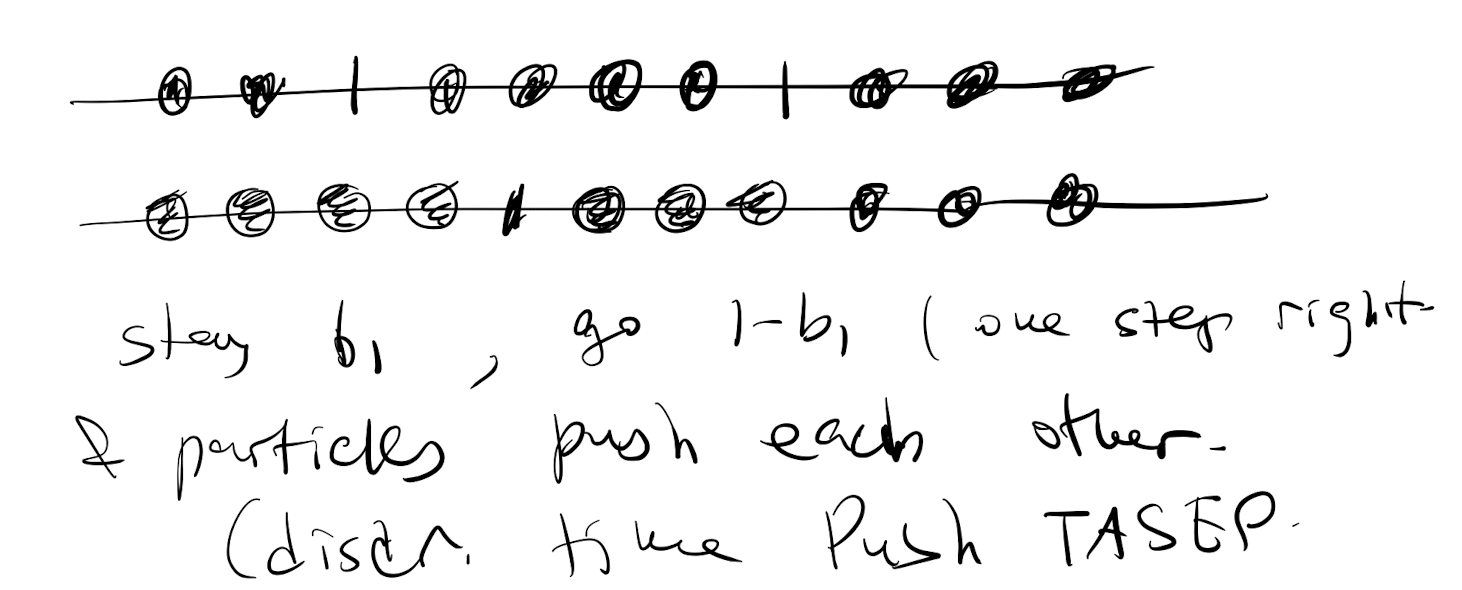 stay b₁, go 1-b₁ (one step right
& particles push each other.
(discr. time Push TASEP.